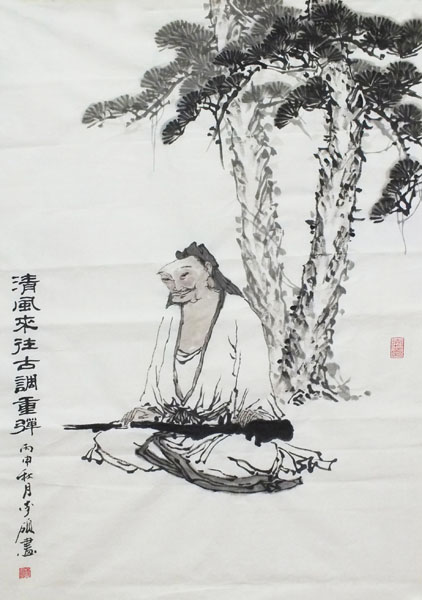 清風來往古調重彈
丙申秋月李碩畫